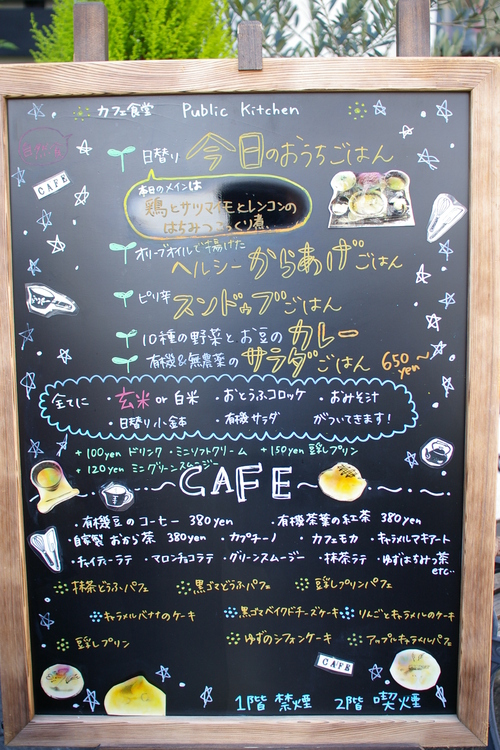 カフェ食堂 Public Kitchen
CAFE
日替り 今日のおうちごはん
本日のメインは
鶏とサツマイモとレンコンの
はちみつこっくり煮。
オリーブオイルで揚げた
ヘルシーからあげごはん
ピリ辛 スンドゥブごはん
10種の野菜とお豆のカレー
有機&無農薬のサラダごはん 650yen〜
全てに ・玄米 or 白米 ・おとうふコロッケ ・おみそ汁
・日替り小鉢 ・有機サラダ がついてきます!
+100yen ドリンク ・ミニソフトクリーム +150yen 豆乳プリン
+120yen ミニグリーンスムージー
〜CAFE〜
・有機豆のコーヒー 380yen ・有機茶葉の紅茶 380yen
・自家製 おから茶 380yen ・カプチーノ ・カフェモカ ・キャラメルマキアート
・チャイティーラテ ・マロンチョコラテ ・グリーンスムージー ・抹茶ラテ ・ゆずはちみつ茶
etc
抹茶どうふパフェ 黒ゴマどうふパフェ 豆乳プリンパフェ
キャラメルバナナのケーキ 黒ゴマベイクドチーズケーキ りんごとキャラメルのケーキ
豆乳プリン ゆずのシフォンケーキ アップルキャラメルパフェ
CAFE
1階 禁煙 2階 喫煙